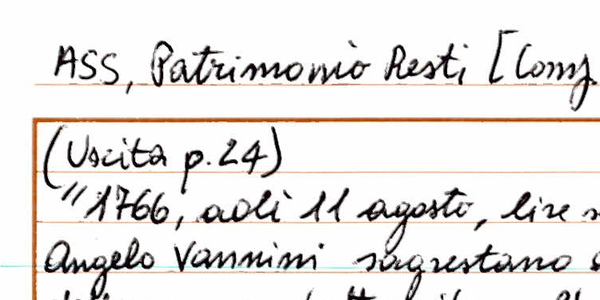 ASS, Patrimonio Resti [Comg.
(Uscita p. 24)
"1766, adì 11 agosto, lire
Angelo Vannini sagrestano